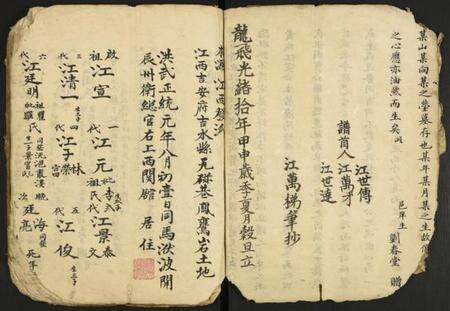 某山某向某之塋墓存也某年某月某之生故傳
之心應亦油然而生矣
邑庠生 劉春堂 贈
譜首人
江世傳
江萬才
江世逵
江萬梯筆抄
龍飛光緒拾年甲申歲季夏月穀旦立
江西吉安府吉水縣
鳳凰岩土地
洪武正統元年八月初壹日同馬洪波開
辰州衛總官右上西關籍居住
啟祖 江宣
一代 江元
江景泰
文
三代 江清一
四代 江子榮
林
富
五代 江俊
六代 江廷明
次廷亮
海